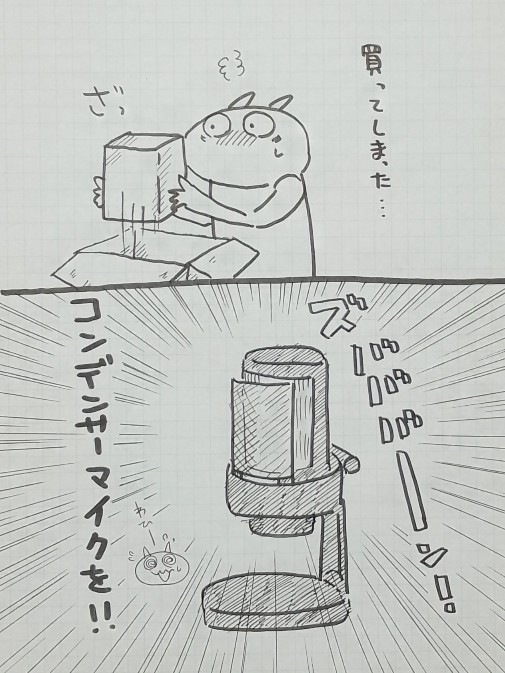 買ってしまった…
ざっ
ズバババーン!
コンデンサーマイクを!!
わひー